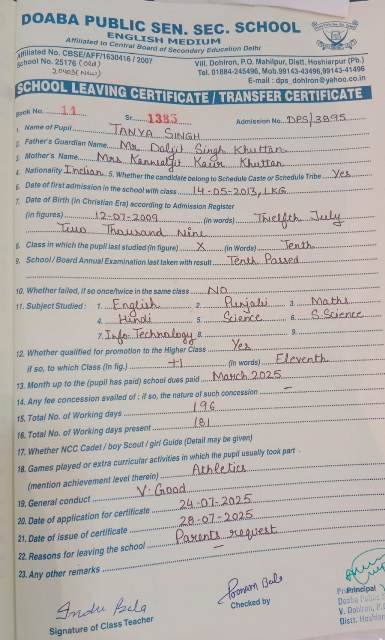 DOABA PUBLIC SEN. SEC. SCHOOL
ENGLISH MEDIUM
Affiliated to Central Board of Secondary Education Delhi
Affiliated No. CBSE/AFF/1630416 / 2007
School No. 25176 (Old)
Vill. Dohlron, P.O. Mahilpur, Distt. Hoshiarpur (Pb.)
Tel. 01884-245496, Mob.99143-43496,99143-41496
E-mail : dps_dohlron@yahoo.co.in
SCHOOL LEAVING CERTIFICATE / TRANSFER CERTIFICATE
Book No. 11 Sr. 1385 Admission No. DPS/3895
1 Name of Pupil TANYA SINGH
2. Father's Guardian Name Mr Daljit Singh Khuttan
3. Mother's Name Mrs Kamaljit Kaur Khuttan
4. Nationality Indian 5. Whether the candidate belong to Schedule Caste or Schedule Tribe Yes
6. Date of first admission in the school with class 14-05-2013, LKG
7. Date of Birth (in Christian Era) according to Admission Register
(in figures) 12-07-2009 (in words) Twelfth July
Two Thousand Nine
8. Class in which the pupil last studied (in figure) X (in Words) Tenth
9. School / Board Annual Examination last taken with result Tenth Passed
10. Whether failed, if so once/twice in the same class NO
11. Subject Studied : 1. English 2. Punjabi 3. Maths
4. Hindi 5. Science 6. S.Science
7. Info. Technology 8. 9.
12. Whether qualified for promotion to the Higher Class Yes
if so, to which Class (in fig.) +1 (in words) Eleventh
13. Month up to the (pupil has paid) school dues paid March 2025
14. Any fee concession availed of : if so, the nature of such concession –
15. Total No. of Working days 196
16. Total No. of Working days present 181
17. Whether NCC Cadet / boy Scout / girl Guide (Detail may be given)
18. Games played or extra curricular activities in which the pupil usually took part -
(mention achievement level therein) Athletics
19. General conduct V. Good
20. Date of application for certificate 24-07-2025
21. Date of issue of certificate 28-07-2025
22. Reasons for leaving the school Parents request
23. Any other remarks –
Indu Bala
Signature of Class Teacher
Poonam Bala
Checked by
Principal
Doaba Public
V. Dohlron, P.O.
Distt. Hoshiar